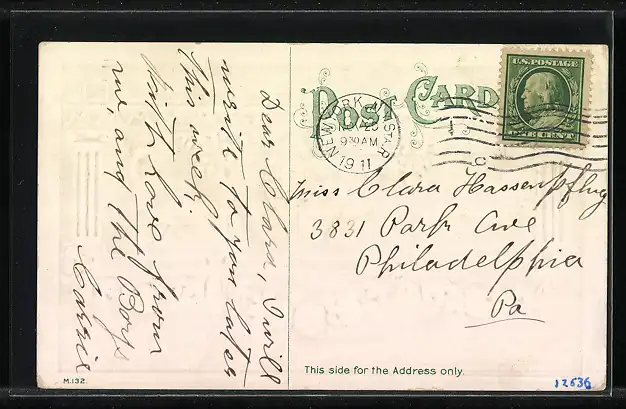 POST CARD
U.S. POSTAGE
ONE CENT
NEW YORK, N.Y. STA. R
NOV 25
930 AM
1911
Dear Clara, I will
write to you later
this week.
With love from
me, and the Boys
Carrie
Miss Clara Hassenpflug
3831 Park Ave
Philadelphia
Pa
This side for the Address only.
M.132
12636